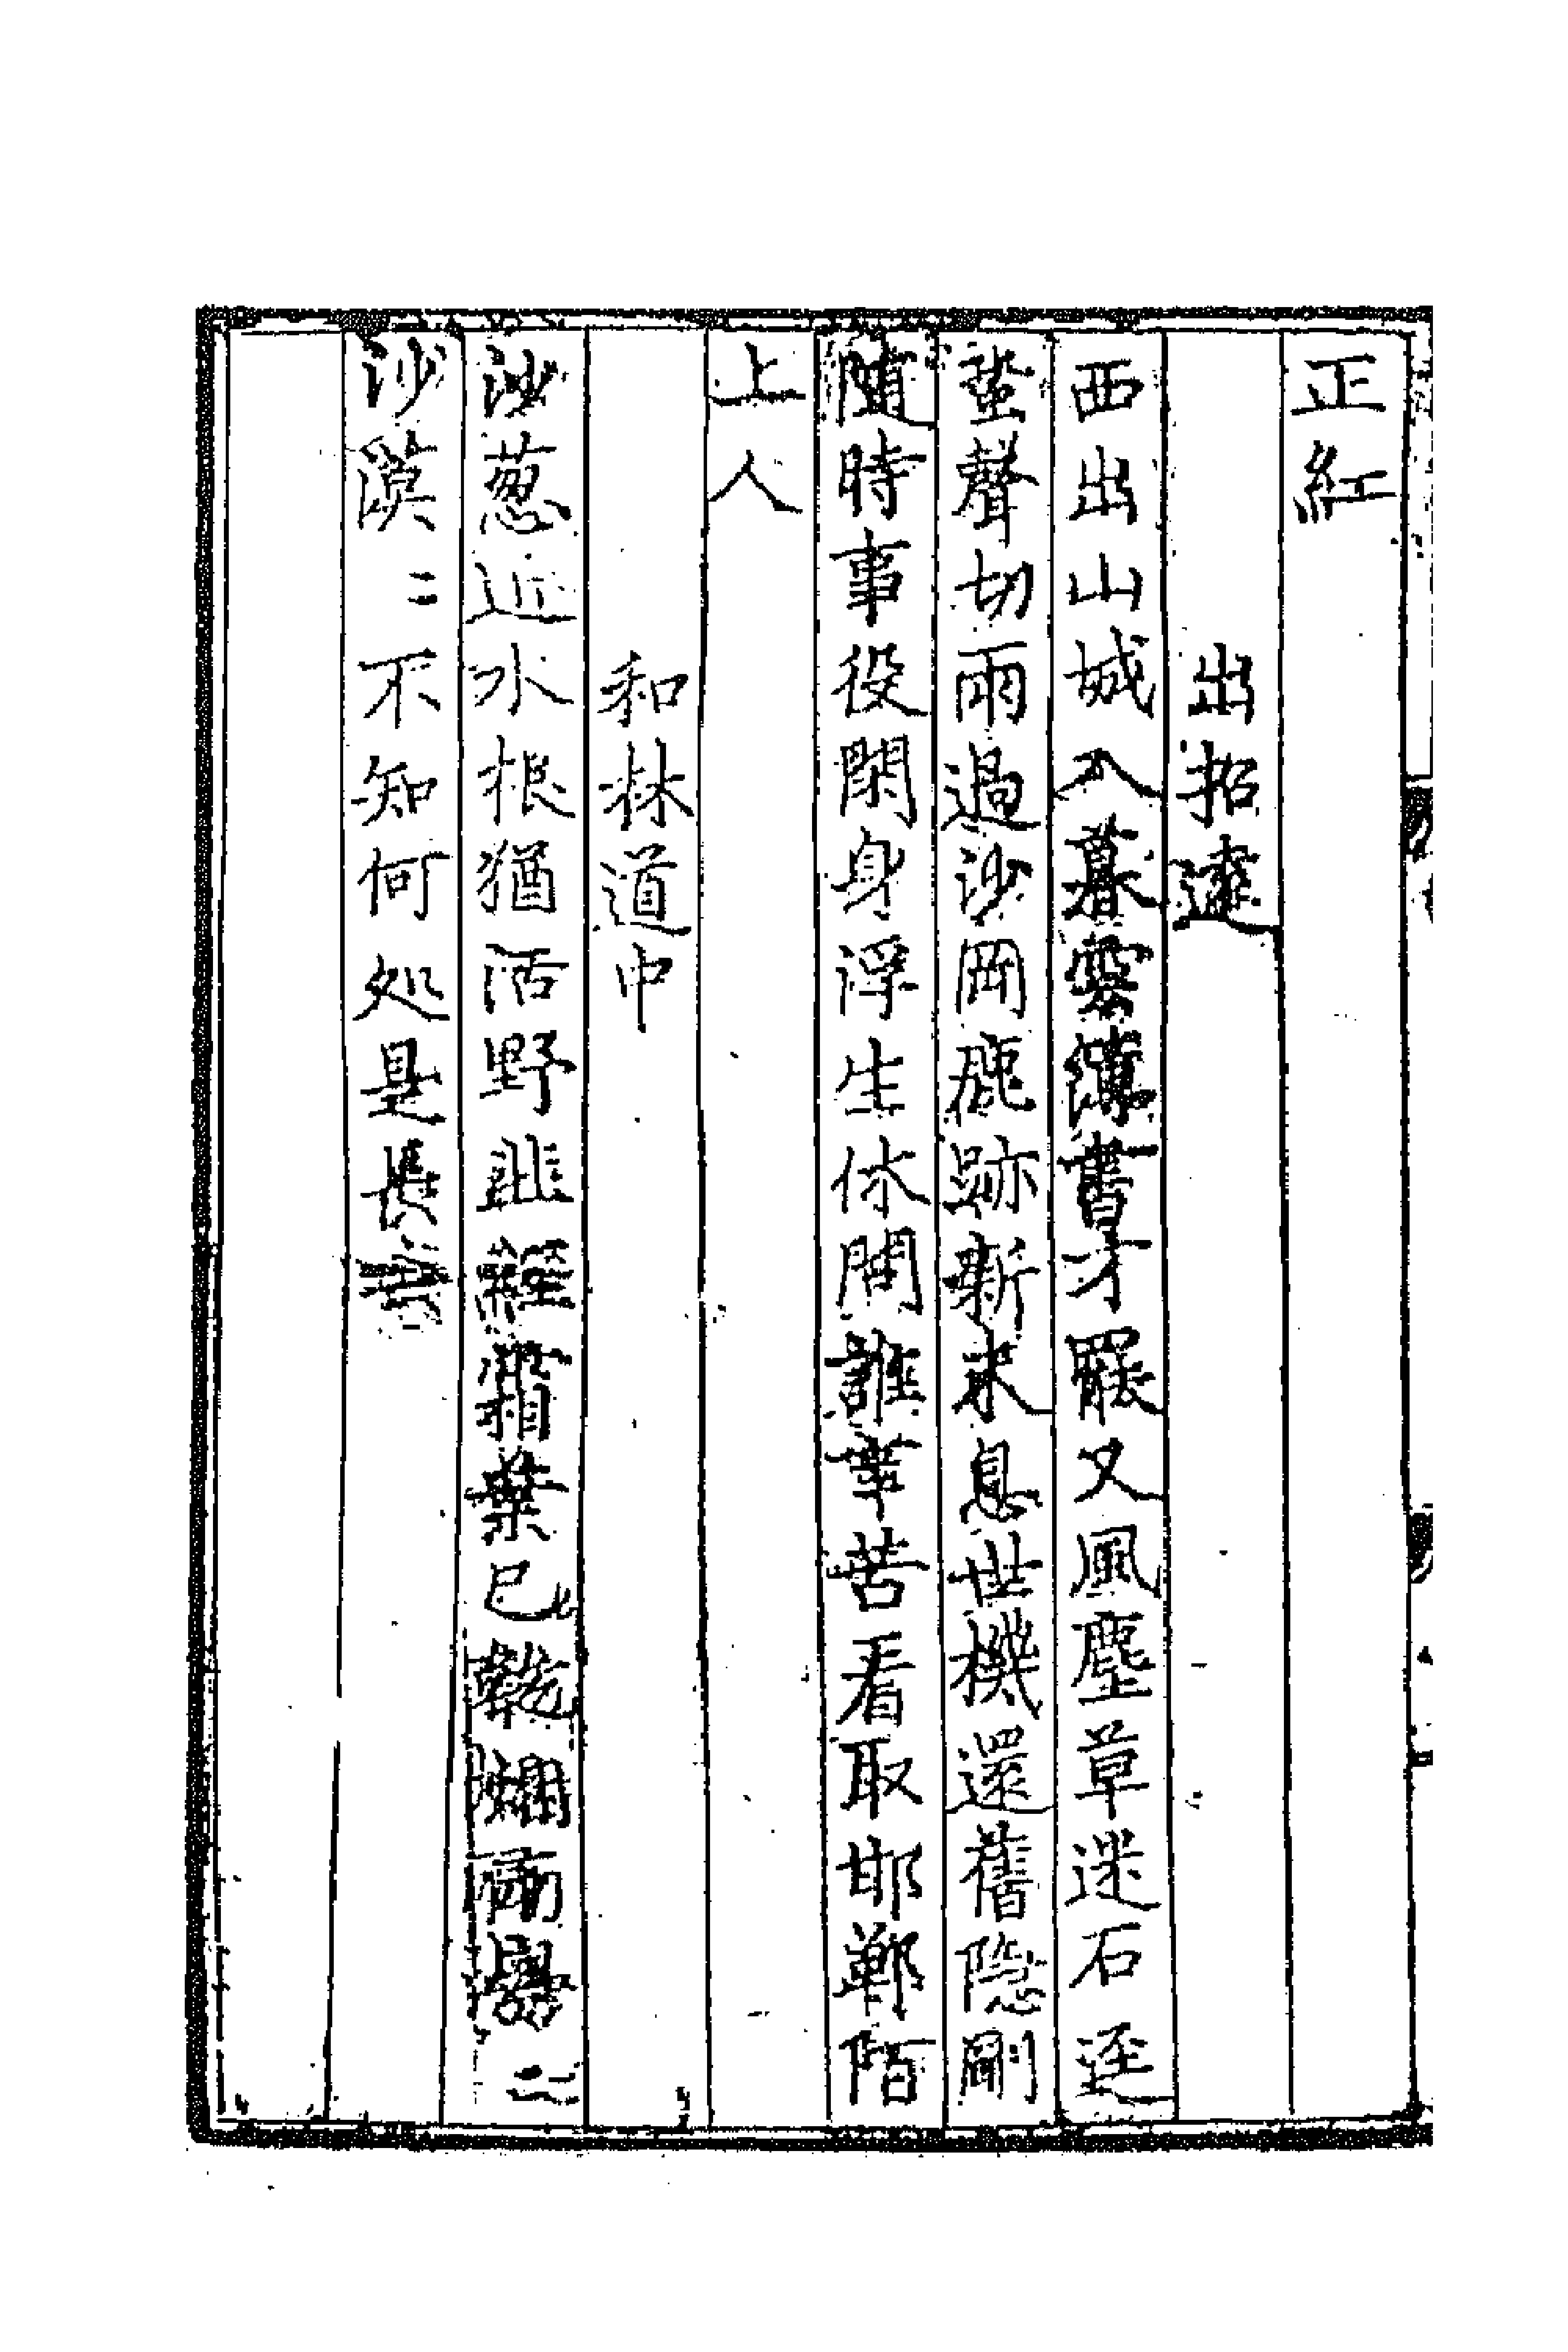 正紅
出招遠
西出山城入暮雲簿書才罷又風塵草迷石逕
蛩聲切雨過沙岡鹿跡新未息世機還舊隱剛
隨時事役閑身浮生休問誰辛苦看取邯鄲陌
上人
和林道中
沙葱近水根猶活野韭經霜葉已乾
沙漠〻不知何処是長安